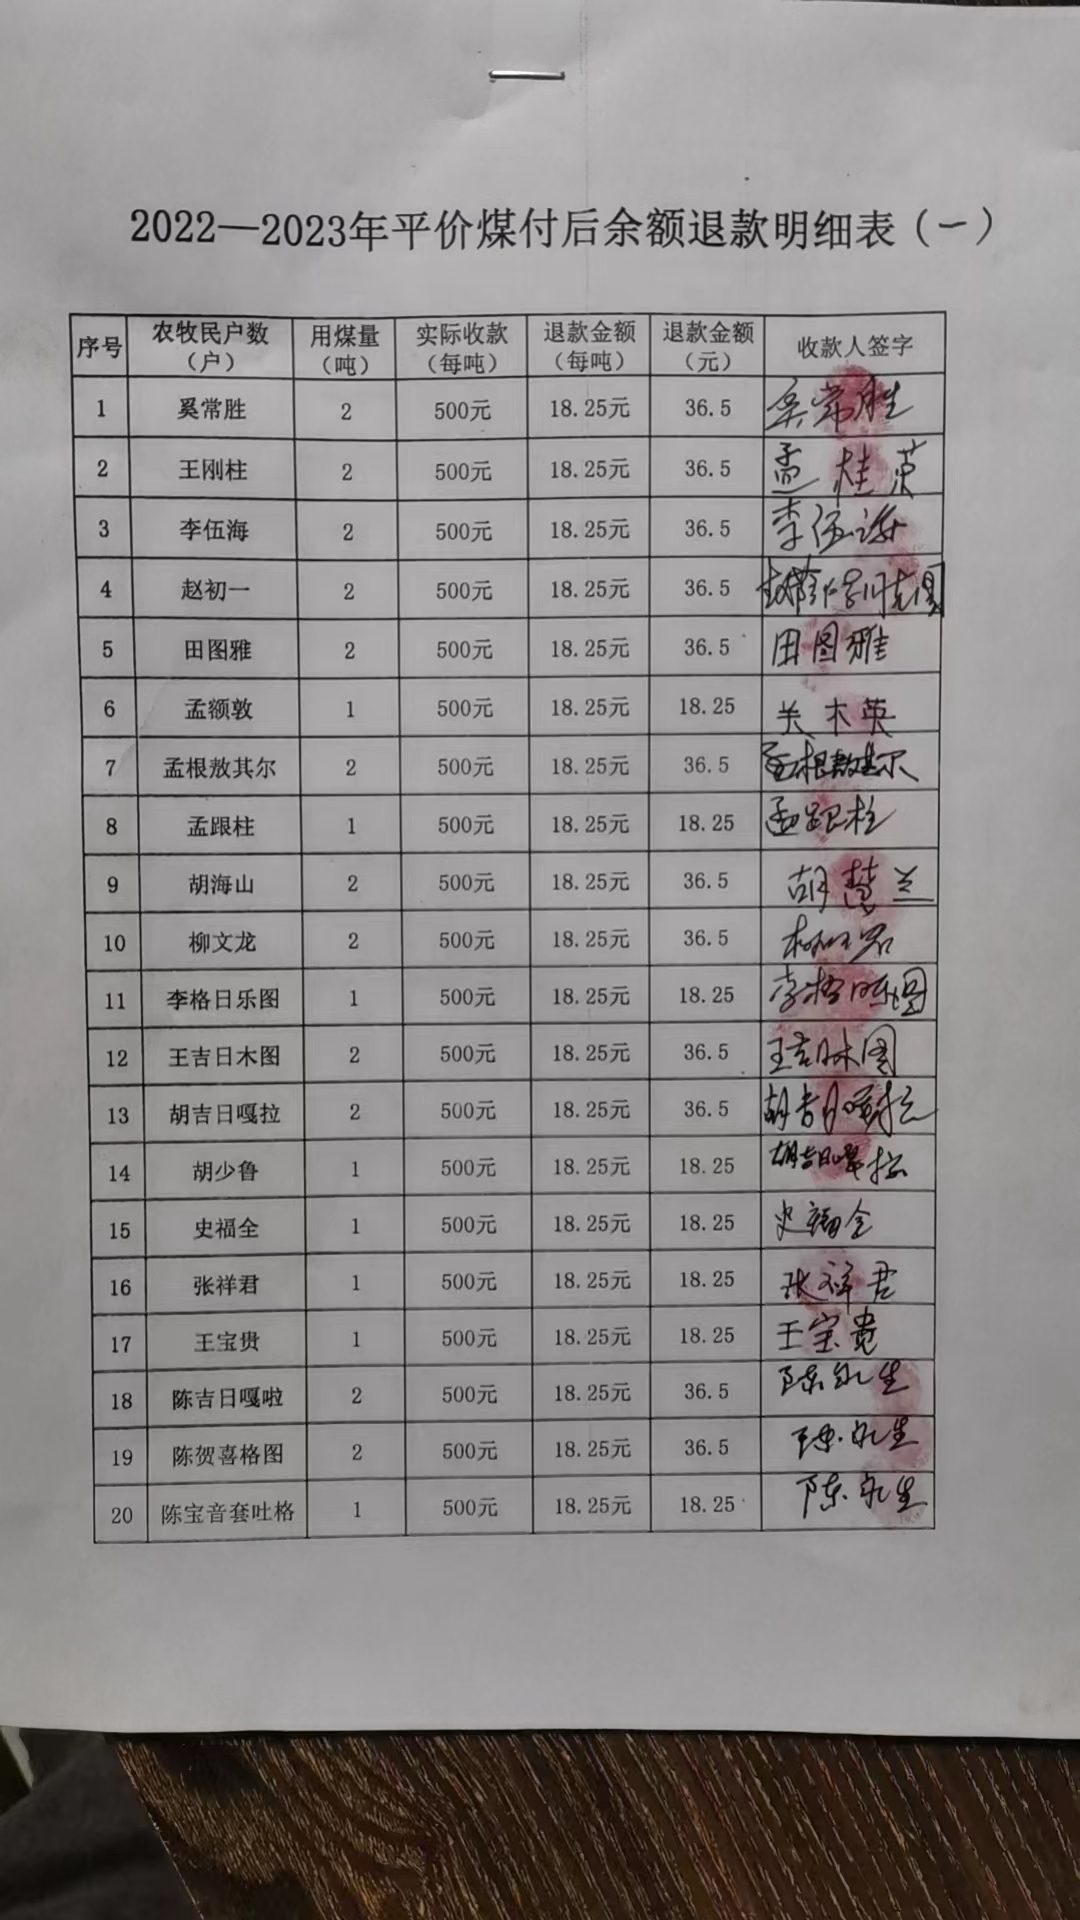 2022—2023年平价煤付后余额退款明细表（一）
序号 农牧民户数（户） 用煤量（吨） 实际收款（每吨） 退款金额（每吨） 退款金额（元） 收款人签字
1 奚常胜 2 500元 18.25元 36.5 奚常胜
2 王刚柱 2 500元 18.25元 36.5 孟桂荣
3 李伍海 2 500元 18.25元 36.5 李伍海
4 赵初一 2 500元 18.25元 36.5
5 田图雅 2 500元 18.25元 36.5 田图雅
6 孟额敦 1 500元 18.25元 18.25 关木英
7 孟根敖其尔 2 500元 18.25元 36.5 孟根敖其尔
8 孟跟柱 1 500元 18.25元 18.25 孟跟柱
9 胡海山 2 500元 18.25元 36.5 胡慧兰
10 柳文龙 2 500元 18.25元 36.5
11 李格日乐图 1 500元 18.25元 18.25 李格日乐图
12 王吉日木图 2 500元 18.25元 36.5 王吉日木图
13 胡吉日嘎拉 2 500元 18.25元 36.5 胡吉日嘎拉
14 胡少鲁 1 500元 18.25元 18.25 胡吉日嘎拉
15 史福全 1 500元 18.25元 18.25 史福全
16 张祥君 1 500元 18.25元 18.25 张祥君
17 王宝贵 1 500元 18.25元 18.25 王宝贵
18 陈吉日嘎啦 2 500元 18.25元 36.5 陈永生
19 陈贺喜格图 2 500元 18.25元 36.5 陈永生
20 陈宝音套吐格 1 500元 18.25元 18.25 陈永生